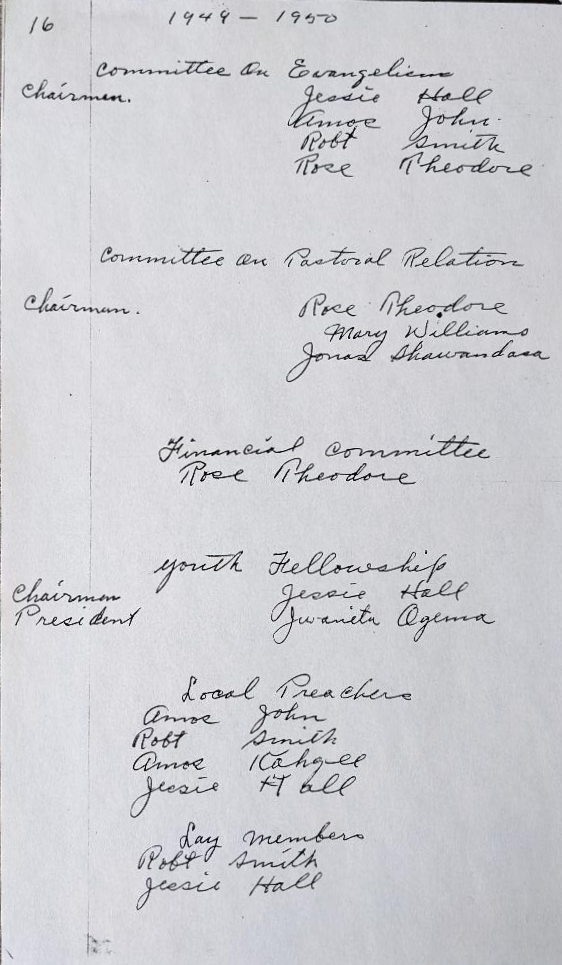 16 1949 - 1950
Committee On Evangelism
Chairman. Jessie Hall
Amos John.
Robt Smith
Rose Theodore
Committee on Pastoral Relation
Chairman. Rose Theodore
Mary Williams
Jonas Shawandasa
Financial Committee
Rose Theodore
Youth Fellowship
Chairman Jessie Hall
President Jwaneta Ogema
Local Preachers
Amos John
Robt Smith
Amos Kahgee
Jessie Hall
Lay Members
Robt Smith
Jessie Hall